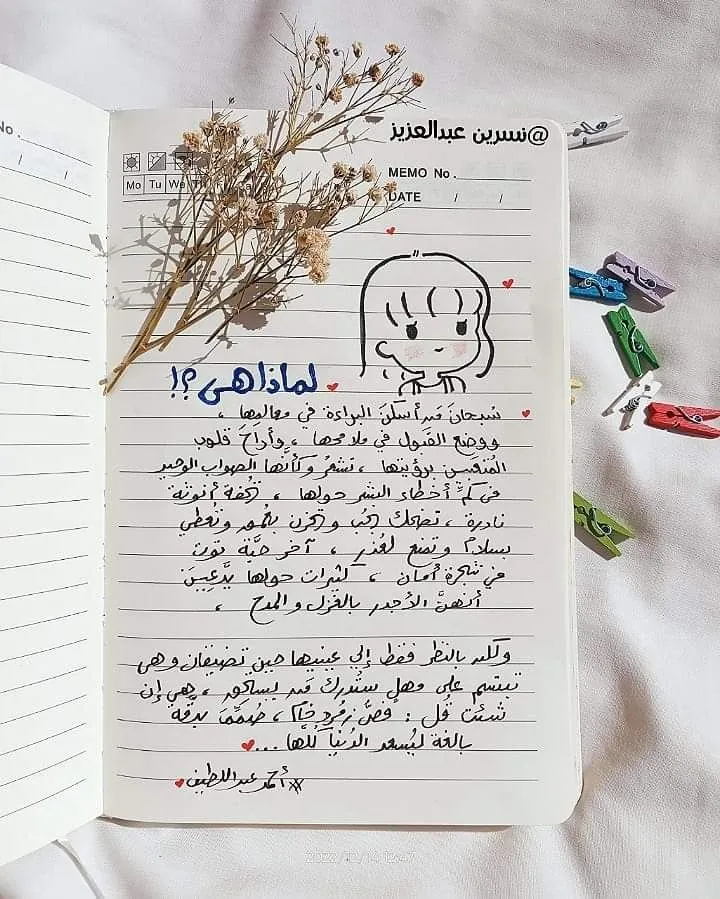 No.
/ /
@نسرين عبدالعزيز
MEMO No.
Mo Tu We Th
DATE / /
لماذا هي ؟!
سُبحانَ مَن أسكنَ البراءة في معاليها ،
ووضع القَبول في ملامحها ، وأراحَ قلوب
المُتعَبين برؤيتها ، تشعُر وكأنَّها الصواب الوحيد
في كَمِّ أخطاء البشر حولها ، تُحفة أنوثة
نادرة ، تضحك الحُب والحزن بغمور وتُعطي
بسلام وتمنع لعُذرٍ ، آخر حبَّة توت
في شجرة أمان ، كثيرات حولها يدَّعِينَ
أنهنَّ الأجدر بالغزل والمدح ،
ولكن بالنظر فقط إلي عينيها حين تضيقان وهى
تبتسم على وهل ستُدرك مَن يستحق ، هي إن
شئتَ قُل : فَصُّ زمُردٍ خام ، صُمِّمَ بدقَّة
بالغة ليُسعد الدُنيا كُلها ...
#أحمد عبداللطيف
2022/12/14 12:47